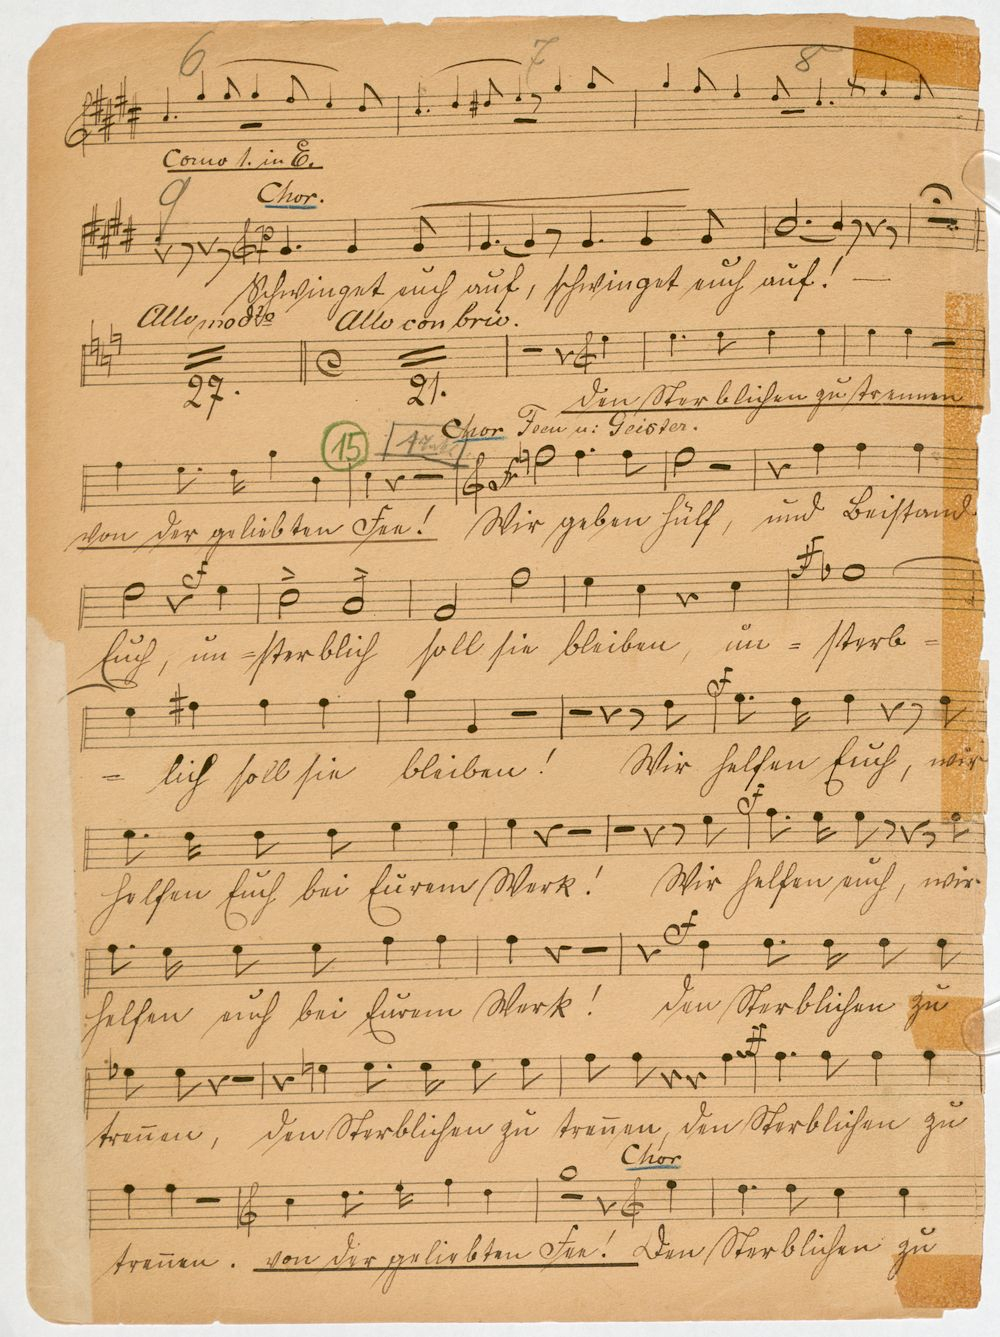 6 7 8
Corno 1. in E.
9 Chor.
Schwinget euch auf, schwinget euch auf! —
Allo modto Allo con brio.
27. 21.
den Sterblichen zu trennen
15 Chor Feen u: Geister.
von der geliebten Fee! Wir geben Hülf, und Beistand
Euch, un=sterblich soll sie bleiben, un = sterb =
= lich soll sie bleiben! Wir helfen Euch, wir
helfen Euch bei Eurem Werk! Wir helfen euch, wir
helfen euch bei Eurem Werk! den Sterblichen zu
treñen, den Sterblichen zu treñen, den Sterblichen zu
Chor
treñen. von der geliebten Fee! Den Sterblichen zu